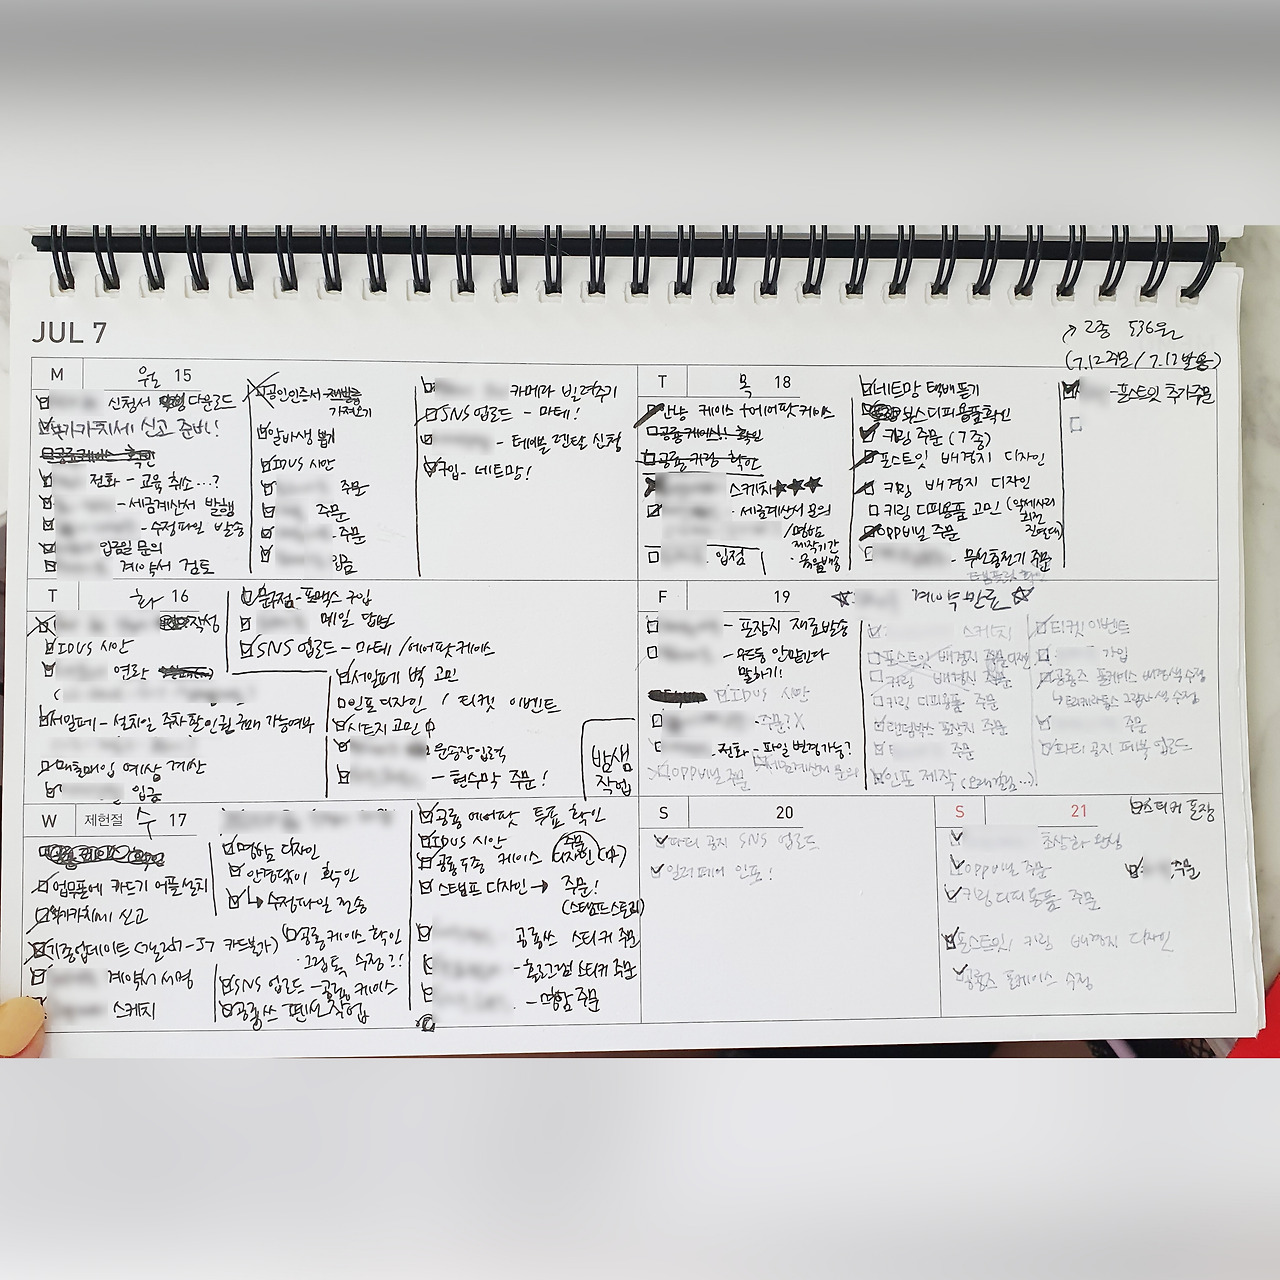 JUL 7
2종 536원
M 월 15
신청서 다운로드
부가가치세 신고 준비!
공룡케이스 확인
전화 - 교육 취소...?
- 세금계산서 발행
- 수정파일 발송
입금일 문의
계약서 검토
공인인증서 재발급
가져오기
알바생 뽑기
IDUS 시안
주문
주문
주문
입금
카메라 빌려주기
SNS 업로드 - 마테!
- 테이블 렌탈 신청
구입 - 네트망!
T 화 16
작성
IDUS 시안
연락
서일페 - 설치일 주차할인권 구매 가능여부
매출매입 예상 계산
입금
문구점 - 포맥스 구입
메일 답변
SNS 업로드 - 마테 / 에어팟케이스
서일페 벽 고민
인포디자인 / 티켓 이벤트
시트지 고민
운송장입력
- 현수막 주문!
밤샘
작업
W 제헌절 수 17
공룡케이스 확인
업무폰에 카드기 어플설치
부가가치세 신고
계약서 서명
스케치
명함 디자인
안경닦이 확인
↳ 수정파일 전송
공룡케이스 확인
그립톡 수정?!
SNS 업로드 - 공룡 케이스
공룡쓰 펜선 작업
공룡 에어팟 투표 확인
IDUS 시안
주문
공룡 2종 케이스 디자인
스탬프 디자인 → 주문!
(스탬프스토리)
공룡쓰 스티커 주문
- 홀로그램 스티커 주문
- 명함 주문
T 목 18
안낭 케이스 + 에어팟케이스
공룡케이스! 확인
공룡 키링 확인
스케치 ★★★
- 세금계산서 문의
/ 명함
제작기간
입점
네트망 택배뜯기
디피용품확인
키링 주문 (7종)
포스트잇 배경지 디자인
키링 배경지 디자인
키링 디피용품 고민
회전
진열대
OPP비닐 주문
- 무선충전기 주문
- 포스트잇 추가주문
F 19 ☆ 계약만료 ☆
- 포장지 재료발송
말하기!
IDUS 시안
- 주문? X
- 전화 - 파일 변경가능?
세금계산서 문의
OPP비닐 주문
스케치
포스트잇 배경지 주문
키링 배경지 주문
키링 디피용품 주문
랜덤박스 포장지 주문
주문
인포 제작
티켓 이벤트
가입
공룡즈 폰케이스 배경색 수정
↳ 티라노사우르스 그림자 색 수정
주문
파티 공지 페북 업로드
S 20
파티 공지 SNS 업로드
일러페어 인포!
S 21
스티커 포장
초상화 완성
OPP비닐 주문
주문
키링 디피용품 주문
포스트잇, 키링 배경지 디자인
공룡즈 폰케이스 수정